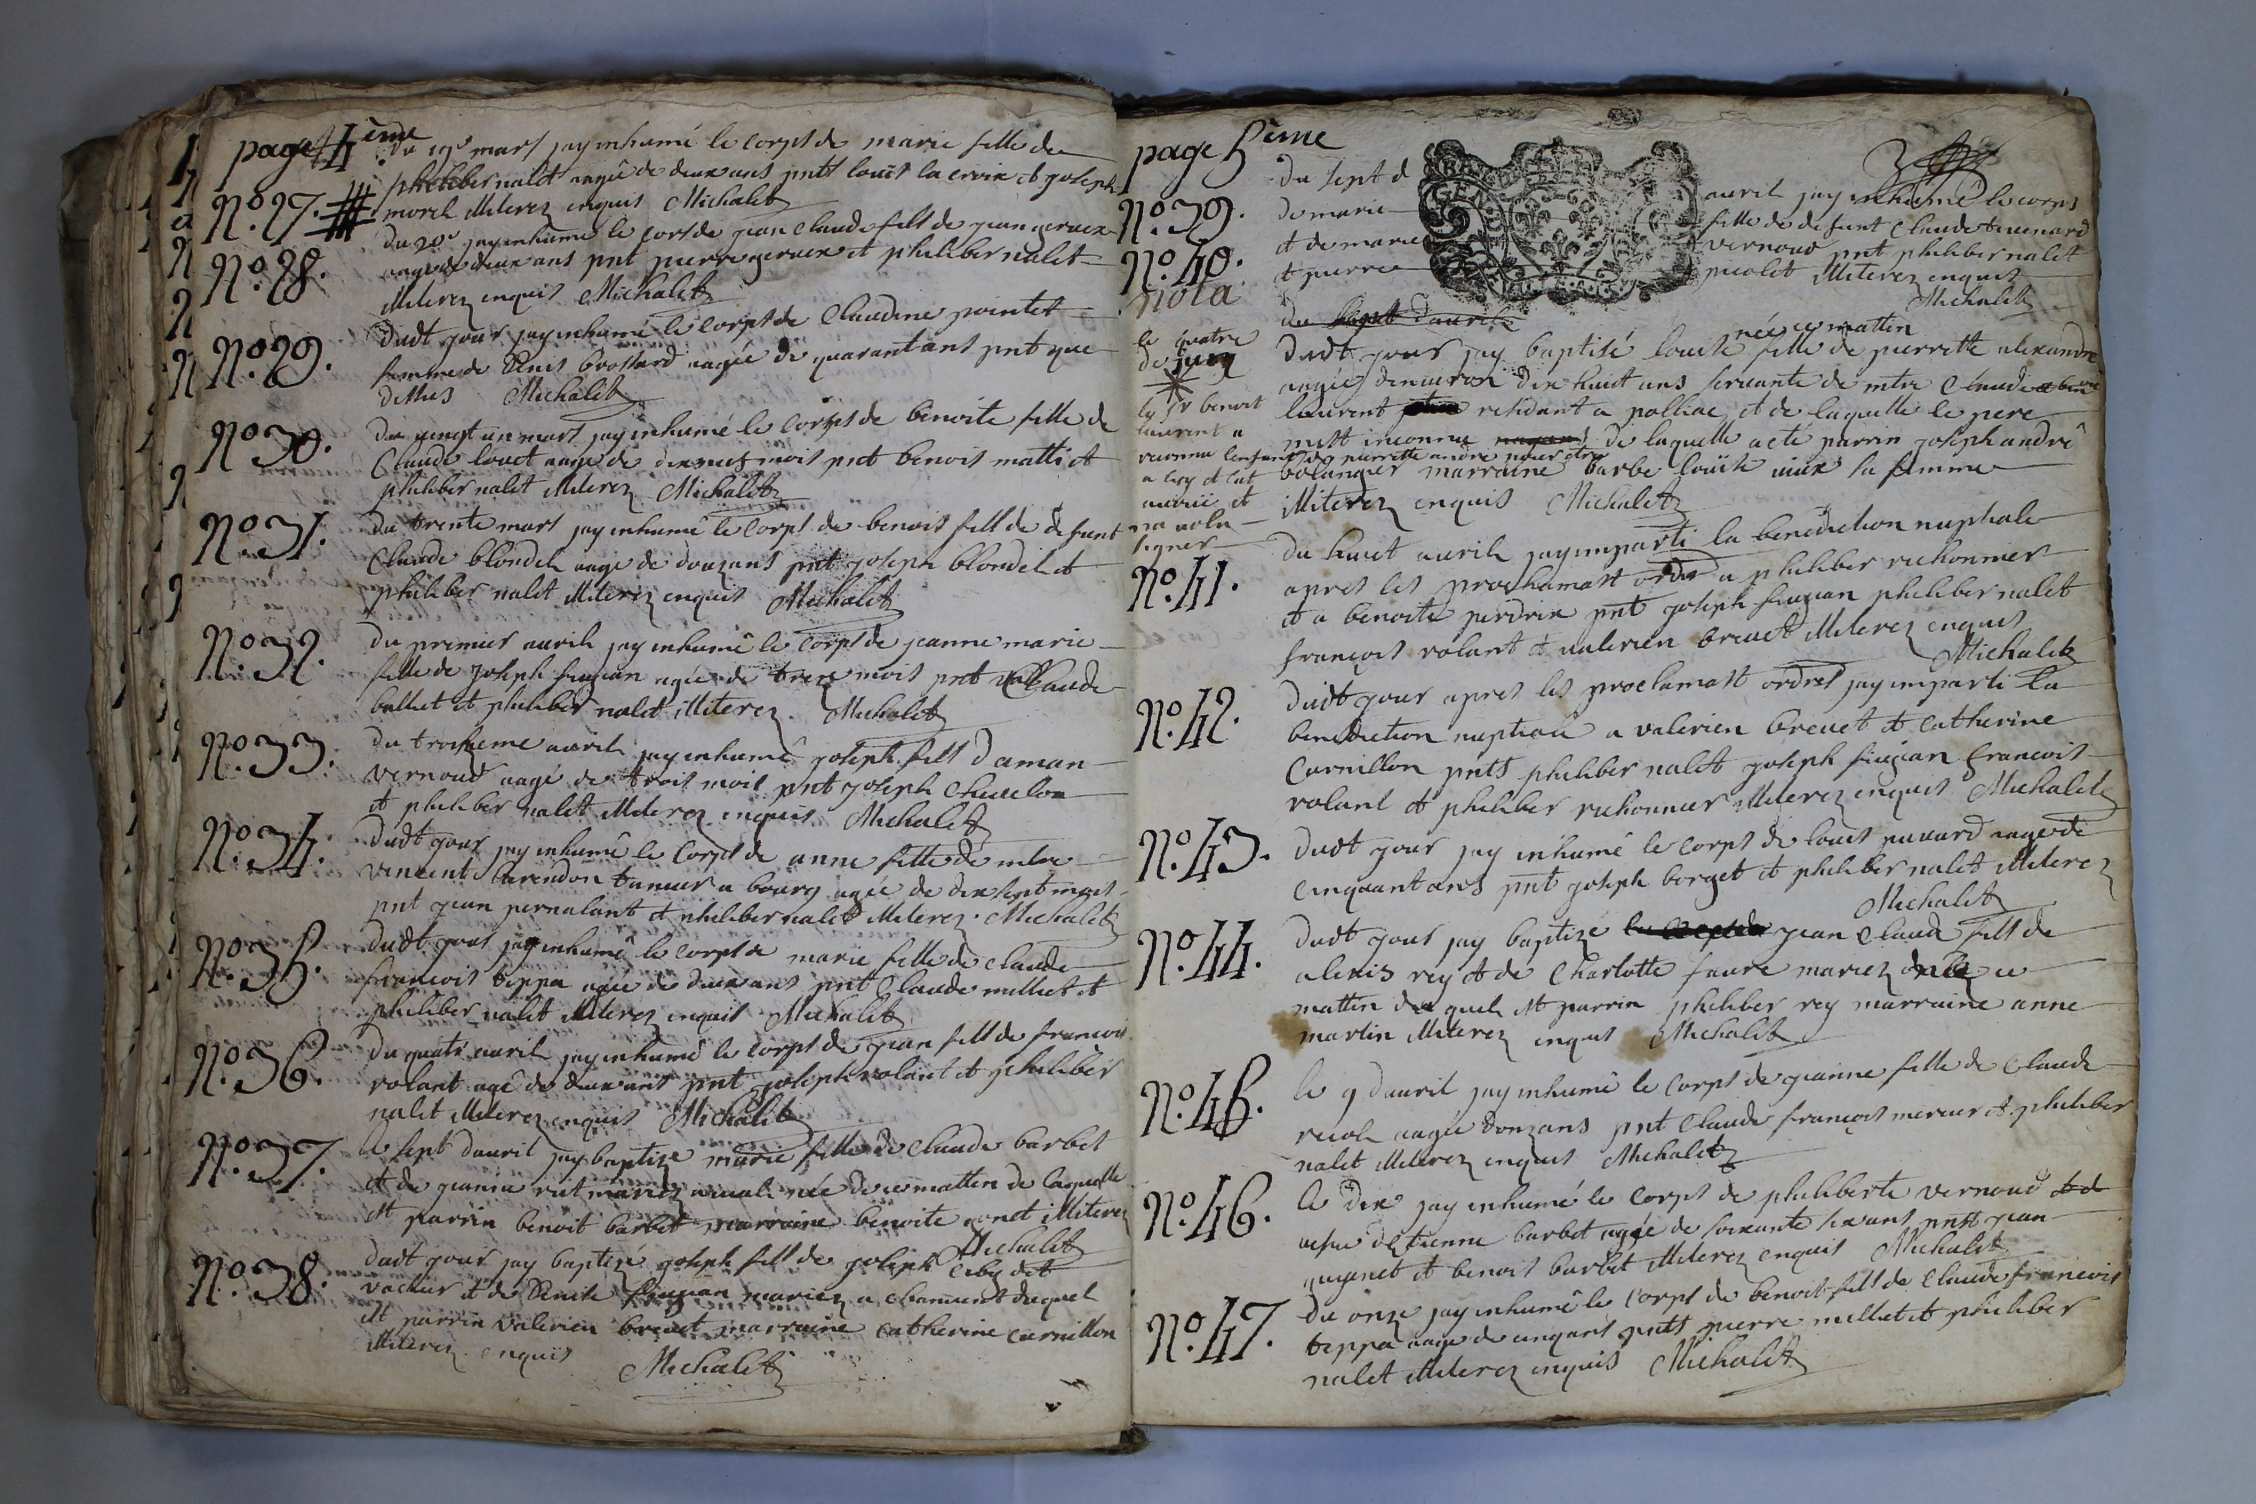 page 4ème
N° 27.
du 19e mars jay inhumé le corps de marie fille de
philiber nalet aagée de deux ans pnts louis la croix et joseph
morel illiterez enquis Michalet
N° 28.
du 20e jay inhumé le cors de jean claude fils de jean
aagé de deux ans pnt pierre et philiber nalet
illiterez enquis Michalet
N° 29.
dudt jour jay inhumé le corps de Claudine pointet
femme de Denis brossard aagée de quarant ans pnt que
dessus Michalet
N° 30.
du vingt un mars jay inhumé le corps de benoite fille de
Claude louet aagé de dixneuf mois pnt benoit matti et
philiber nalet illiterez Michalet
N° 31.
du trente mars jay inhumé le corps de benoit fils de defunt
Claude blondel aagé de douzans pnt joseph blondel et
philiber nalet illiterez enquis Michalet
N° 32.
du premier avril jay inhumé le corps de jeanne marie
fille de joseph agée de treze mois pnt Claude
balliet et philiber nalet illiterez. Michalet
N° 33.
du troisieme avril jay inhumé joseph fils daman
vernoud aagé de trois mois pnt joseph
et philiber nalet illiterez enquis Michalet
N° 34.
dudt jour jay inhumé le Corps de anne fille de mtre
vincent taneur a bourg agée de dix sept mois
pnt jean pernalant et philiber nalet illiterez. Michalet
N° 35.
dudt jour jay inhumé le corps de marie fille de claude
francois teppa agée de deux ans pnt Claude milliet et
philiber nalet illiterez enquis Michalet
N° 36.
du quatre avril jay inhumé le corps de jean fils de francois
volant agé de deux ans pnt joseph volant et philiber
nalet illiterez enquis Michalet
N° 37.
le sept davril jay baptize marie fille de Claude barbet
et de jeanne mariez née de ce mattin de laquelle
est parrin benoit barbet marraine benoite gonet illiterez
Michalet
N° 38.
dudt jour jay baptizé joseph fils de joseph dit
vacheur et de Denise mariez a duquel
est parrin valerien brevet marraine catherine curnillon
illiterez enquis
Michalet
page 5ème
N° 39.
du sept d avril jay inhumé le corps
de marie fille de defunt Claude
et de marie vernoud pnt philiber nalet
et pierre picolet illiterez enquis
Michalet
N° 40.
nota
le quatre
de
le Sr benoit
laurent a
reconnu lenfant de pierrette andre pour etre
a luy et lat
et
na volu
signer
née ce mattin
dudt jour jay baptisé louise fille de pierrette alexandre
aagée denviron dix huit ans servante de mtre Claude
laurent residant a polliac et de laquelle le pere
mest inconnu de laquelle a eté parrin joseph andré
bolanger marraine barbe louise sa femme
illiterez enquis Michalet
N° 41.
du huit avril jay imparti la benediction nuptiale
apres les proclamast ordres a philiber richonnier
et a benoite perdrix pnt joseph philiber nalet
françois volant et valerien brevet illiterez enquis
Michalet
N° 42.
dudt jour apres les proclamast ordres jay imparti la
benediction nuptiale a valerien brevet et catherine
Curnillon pnts philiber nalet joseph francois
volant et philiber richonnier illiterez enquis Michalet
N° 43.
dudt jour jay inhumé le corps de louis aagé de
cinquant ans pnt joseph borget et philiber nalet illiterez
Michalet
N° 44.
dudt jour jay baptizé jean Claude fils de
alexis rey et de Charlotte faure mariez ce
mattin duquel est parrin philiber rey marraine anne
martin illiterez enquis Michalet
N° 45.
le 9 davril jay inhumé le corps de jeanne fille de Claude
aagée donzans pnt Claude françois mercier et philiber
nalet illiterez enquis Michalet
N° 46.
le dix jay inhumé le corps de philiberte vernoud
vefve detienne barbet agée de soixante six ans pnts jean
guyenet et benoit barbet illiterez enquis Michalet
N° 47.
du onze jay inhumé le corps de benoit fils de Claude francois
teppa aagé de cinqans pnts pierre milliet et philiber
nalet illiterez enquis Michalet